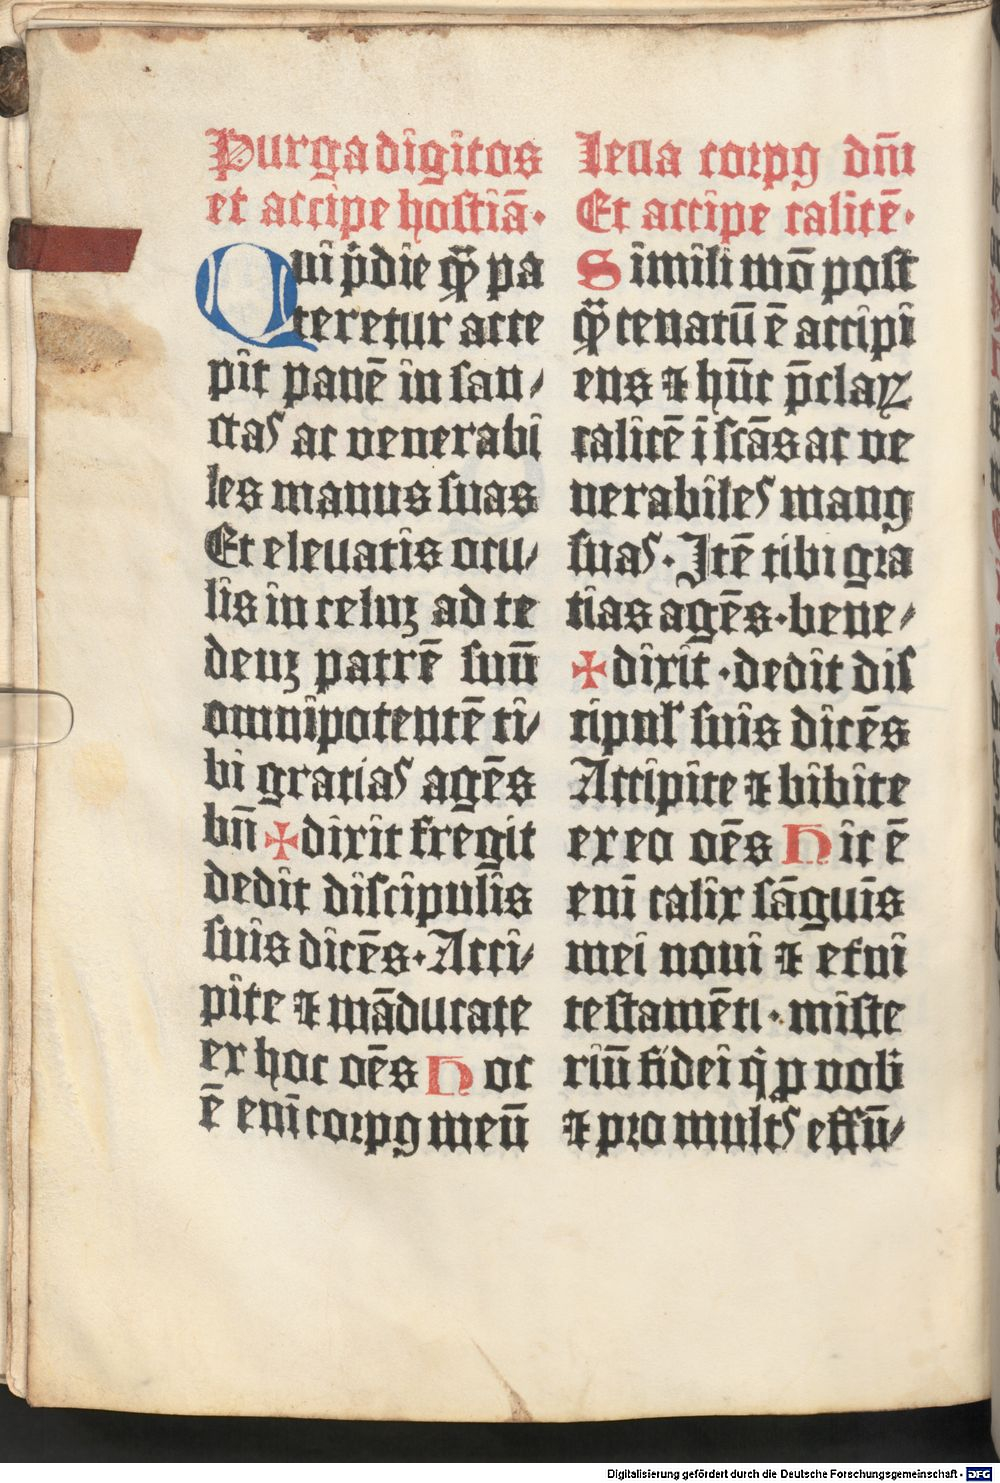 Purga digitos
et accipe hostiā·
Qui p̄die q̄ꝫ pa
teretur acce
pit panē in san⸗
ctas ac venerabi
les manus suas
Et eleuatis ocu⸗
lis in celuꝫ ad te
deuꝫ patrē suū
omnipotentē ti⸗
bi gratias agēs
bn̄ ✠ dixit fregit
dedit discipulis
suis dicēs· Acci⸗
pite ⁊ māducate
ex hoc oēs Hoc
ē eni̅ corpꝯ meū
Leua corpꝯ dn̄i
Et accipe calicē·
Simili mō post
q̄ꝫ cenatū ē accipi
ens ⁊ hūc p̄claꝝ
calicē ī scās ac ve
nerabiles manꝯ
suas· Itē tibi gra
tias agēs· bene⸗
✠ dixit· dedit dis
cipul' suis dicēs
Accipite ⁊ bibite
ex eo oēs Hic ē
eni̅ calix sāguīs
mei noui ⁊ et'ni
testamēti· miste
riū fidei q̇ ꝓ vob'
⁊ pro mult' effū⸗
Digitalisierung gefördert durch die Deutsche Forschungsgemeinschaft - DFG